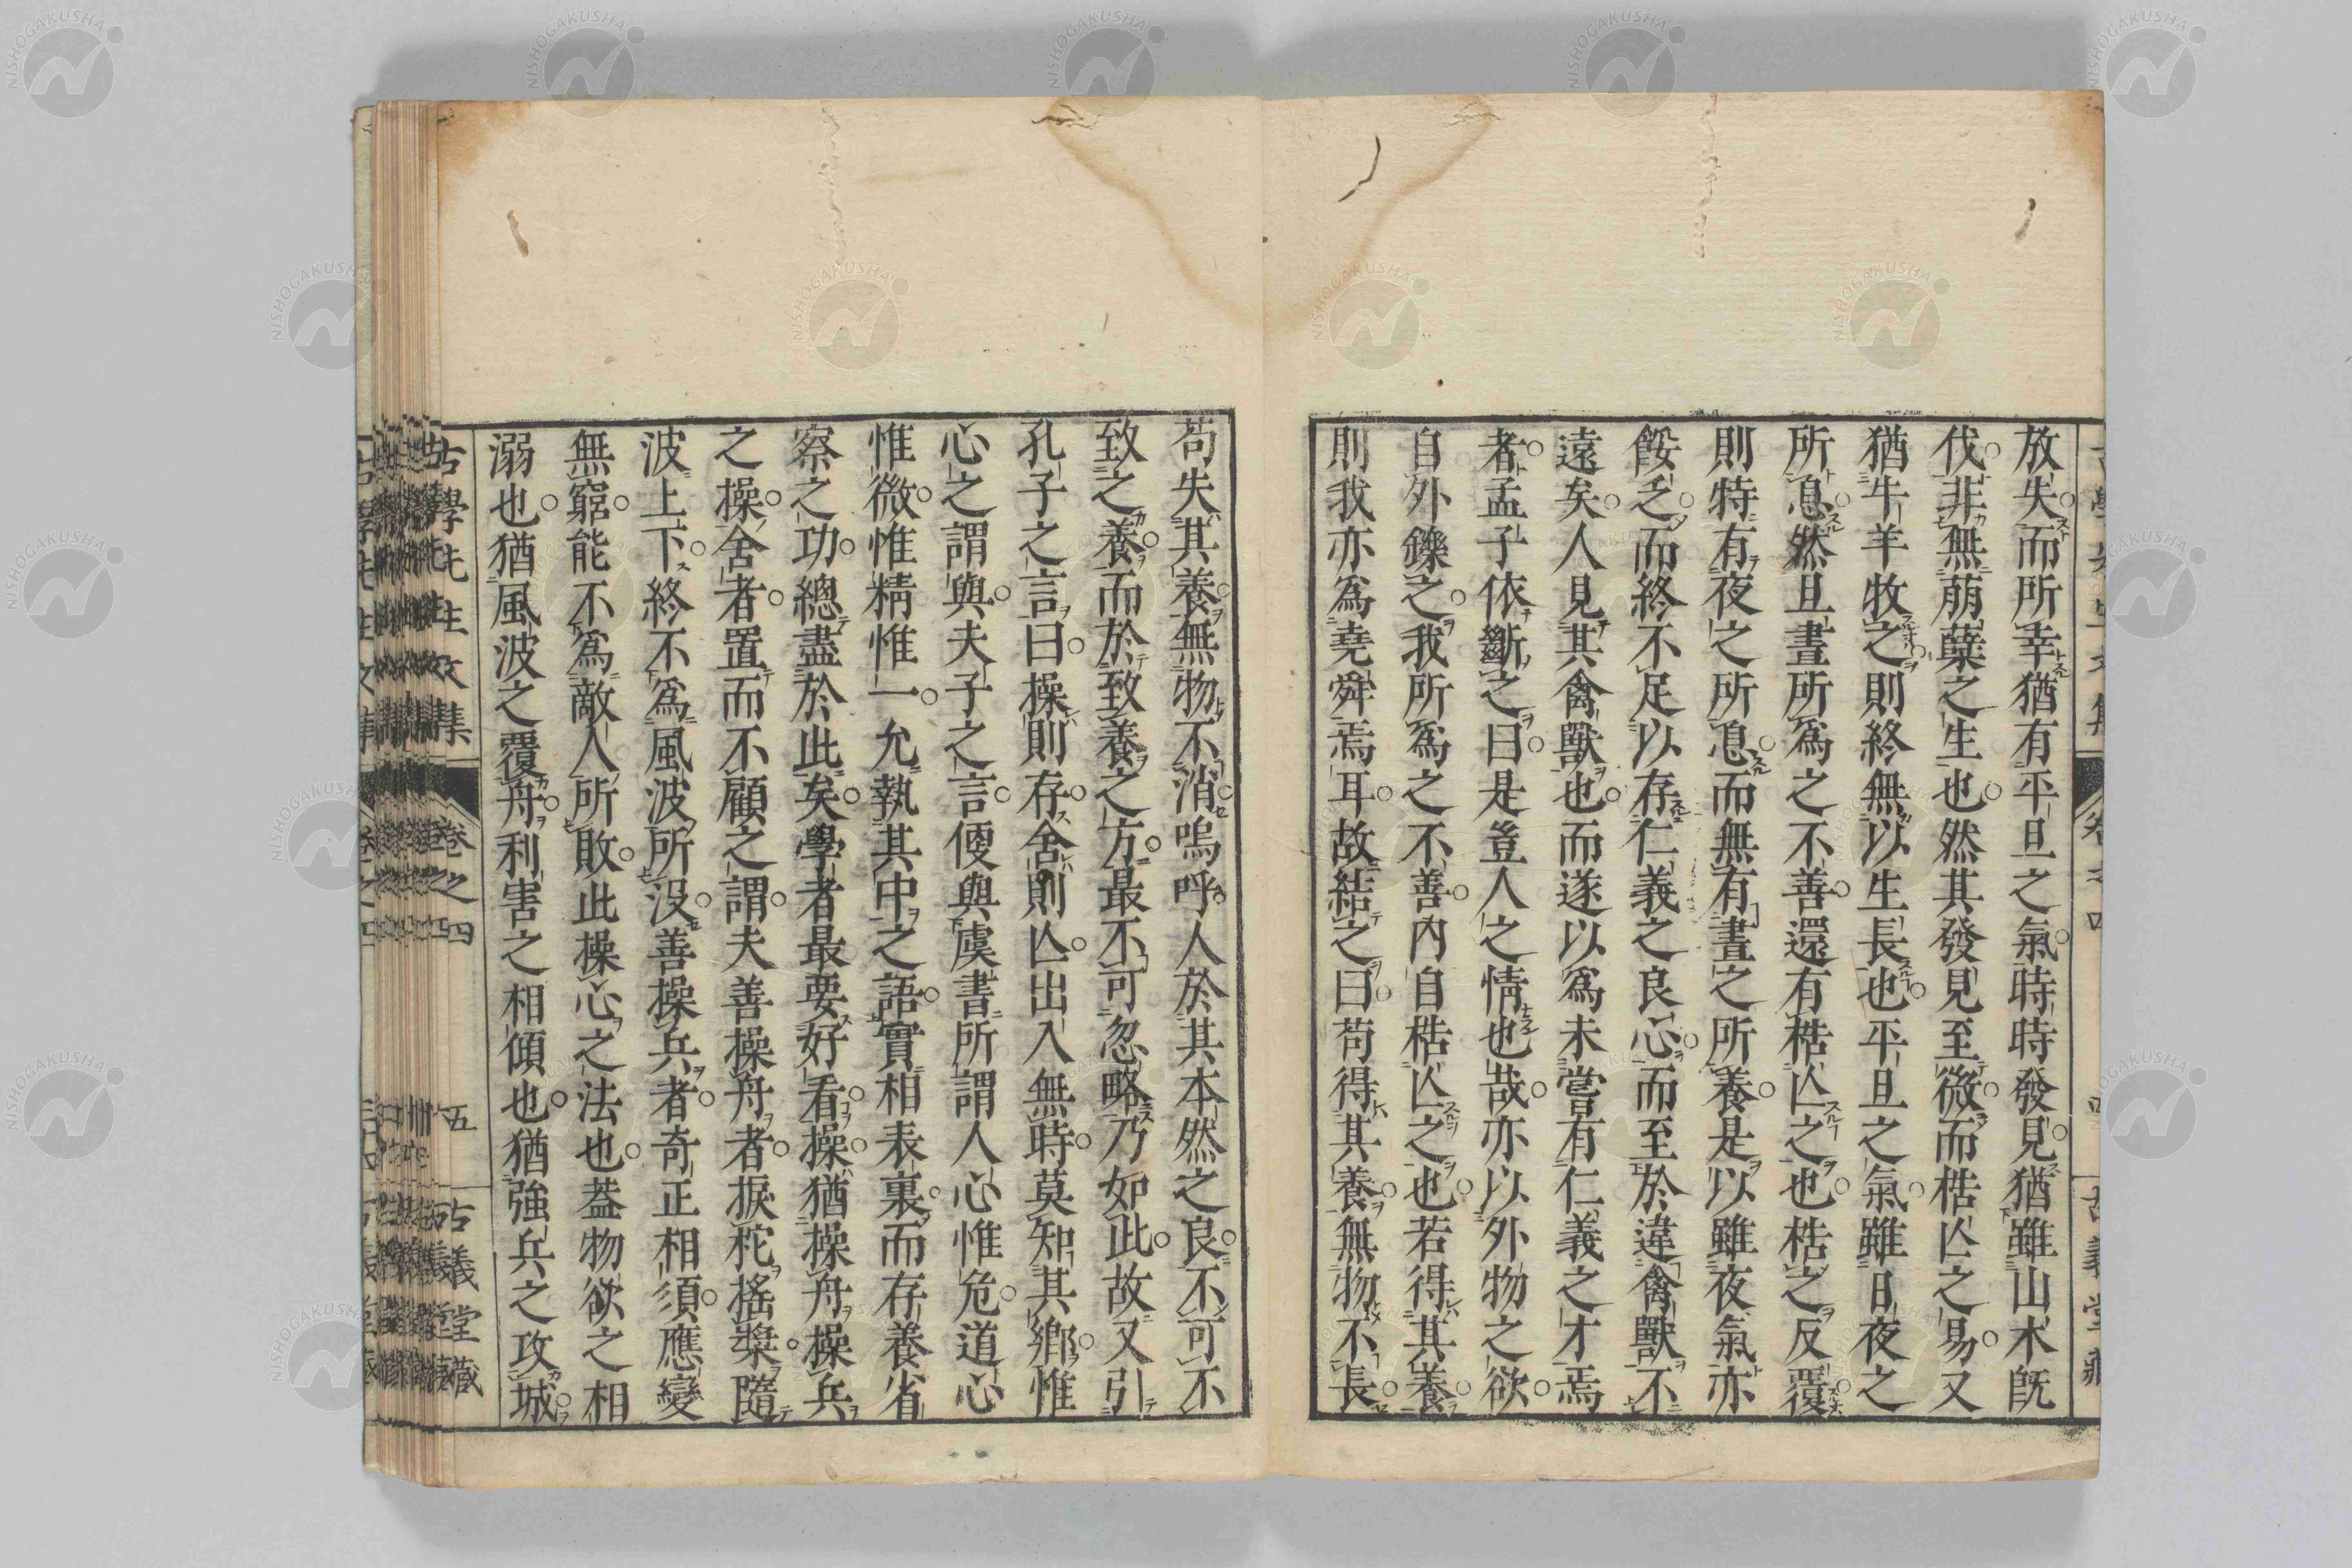 放失而所幸猶有平旦之氣時時發見猶雖山木既
伐非無萠蘖之生也然其發見至微而梏亾之易又
猶牛羊牧之則終無以生長也平旦之氣雖日夜之
所息然旦晝所爲之不善還有梏亾之也梏之反覆
則特有夜之所息而無有晝之所養是以雖夜氣亦
餒乏而終不足以存仁義之良心而至於違禽獸不
遠矣人見其禽獸也而遂以爲未嘗有仁義之才焉
者孟子依斷之曰是豈人之情也哉亦以外物之欲
自外鑠之我所爲之不善內自梏亾之也若得其養
則我亦爲堯舜焉耳故結之曰苟得其養無物不長
苟失其養無物不消嗚呼人於其本然之良不可不
致之養而於致養之方最不可忽略乃如此故又引
孔子之言曰操則存舍則亾出入無時莫知其鄉惟
心之謂與夫子之言便與虞書所謂人心惟危道心
惟微惟精惟一允執其中之語實相表裏而存養省
察之功總盡於此矣學者最要好看操猶操舟操兵
之操舍者置而不顧之謂夫善操舟者捩柁搖槳隨
波上下終不爲風波所没善操兵者奇正相須應變
無窮能不爲敵人所敗此操心之法也葢物欲之相
溺也猶風波之覆舟利害之相傾也猶強兵之攻城
古學先生文集 卷之四 五 古義堂藏